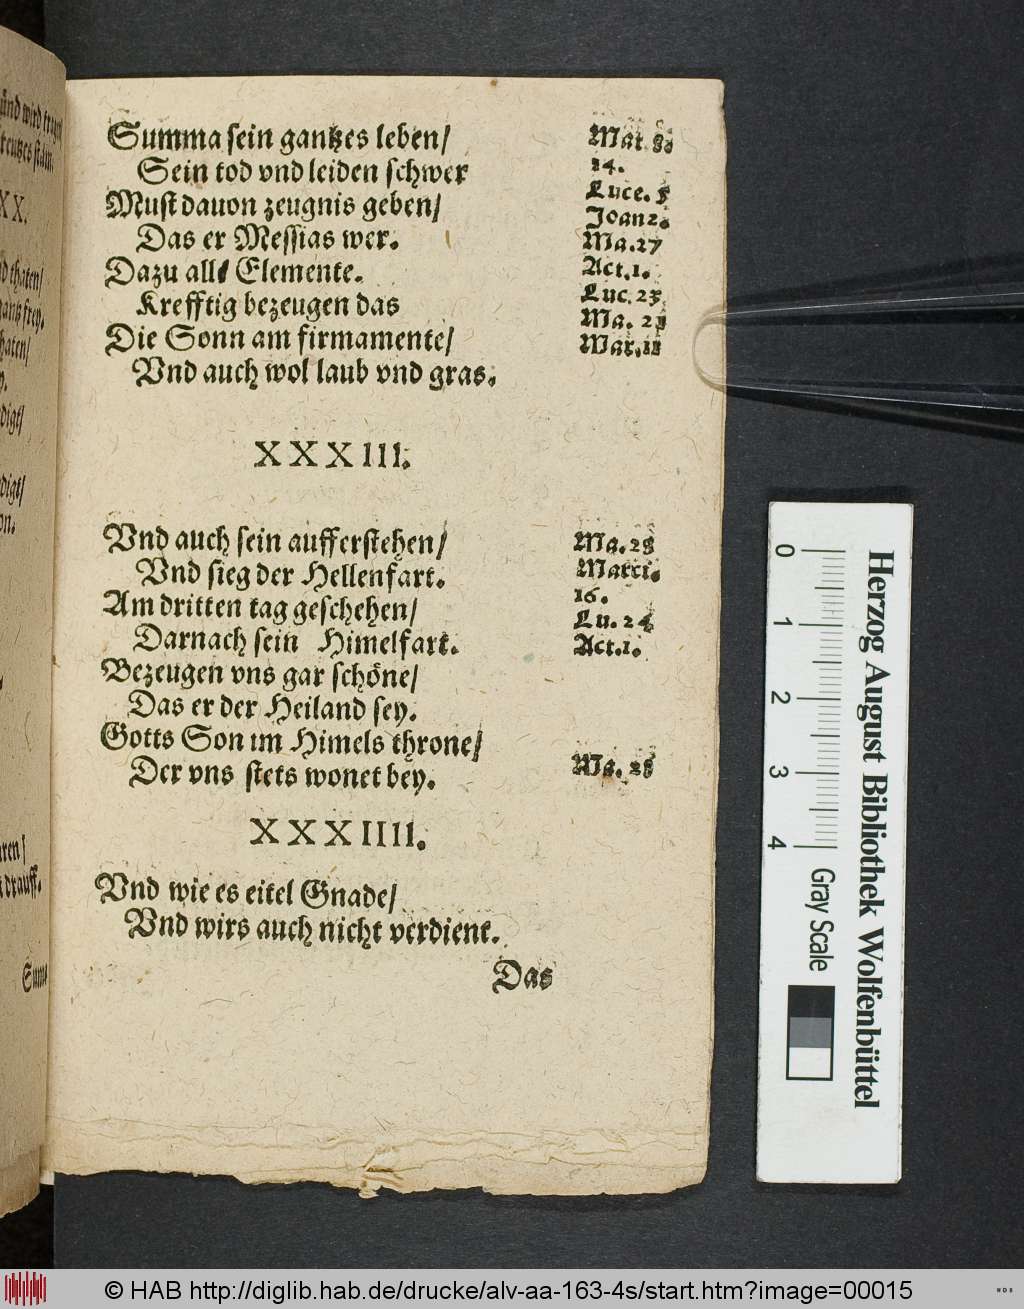 Summa sein gantzes leben/
Sein tod vnd leiden schwer
Must dauon zeugnis geben/
Das er Messias wer.
Dazu alle Elemente.
Krefftig bezeugen das
Die Sonn am firmamente/
Vnd auch wol laub vnd gras.
Mat. 8.
14.
Luce. 5
Joan 2.
Ma. 27
Act. 1.
Luc. 23
Ma. 21
Mar. 11
XXXIII.
Vnd auch sein aufferstehen/
Vnd sieg der Hellenfart.
Am dritten tag geschehen/
Darnach sein Himelfart.
Bezeugen vns gar schöne/
Das er der Heiland sey.
Gotts Son im Himels throne/
Der vns stets wonet bey.
Ma. 28
Marci.
16.
Lu. 24
Act. 1.
Ma. 28
XXXIIII.
Vnd wie es eitel Gnade/
Vnd wirs auch nicht verdient.
Das
XX.
thaten/
frey.
drauff.
0 1 2 3 4
Gray Scale
Herzog August Bibliothek Wolfenbüttel
© HAB http://diglib.hab.de/drucke/alv-aa-163-4s/start.htm?image=00015